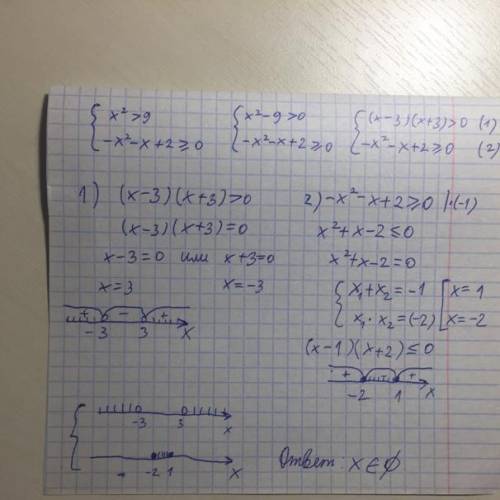 { x² > 9 { x² - 9 > 0 { (x-3)(x+3) > 0 (1)
{ -x² - x + 2 ⩾ 0 { -x² - x + 2 ⩾ 0 { -x² - x + 2 ⩾ 0 (2)
1) (x-3)(x+3) > 0
(x-3)(x+3) = 0
x-3 = 0 или x+3 = 0
x = 3 x = -3
+ - +
-3 3 x
2) -x² - x + 2 ⩾ 0 |·(-1)
x² + x - 2 ≤ 0
x² + x - 2 = 0
{ x₁ + x₂ = -1 [ x = 1
{ x₁ · x₂ = (-2) [ x = -2
(x-1)(x+2) ≤ 0
+ - +
-2 1 x
-3 3 x
-2 1 x
Ответ: x ∈ ∅